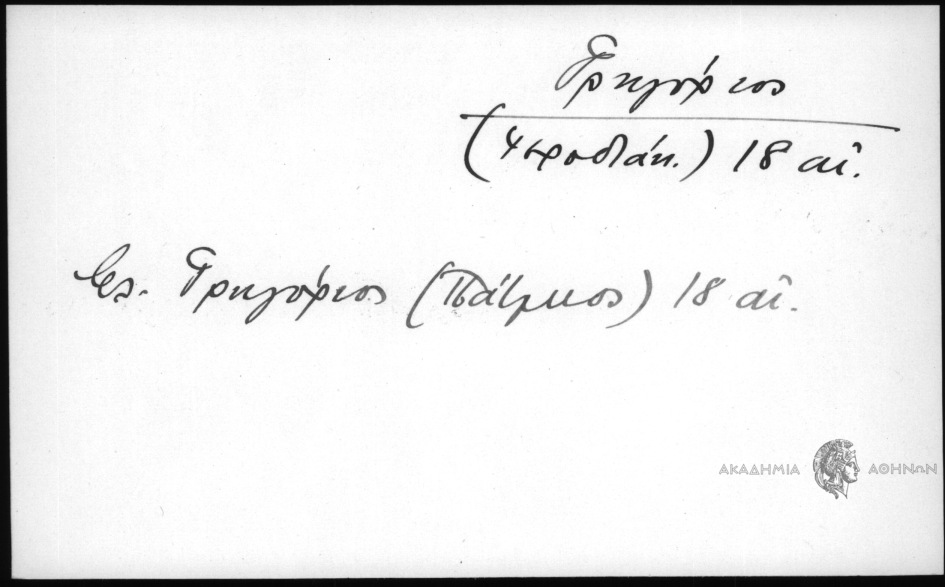 Γρηγόριος
(Ἱεροδιάκ.) 18 αἰ.
Βλ. Γρηγόριος (Πάτμιος) 18 αἰ.
ΑΚΑΔΗΜΙΑ ΑΘΗΝΩΝ